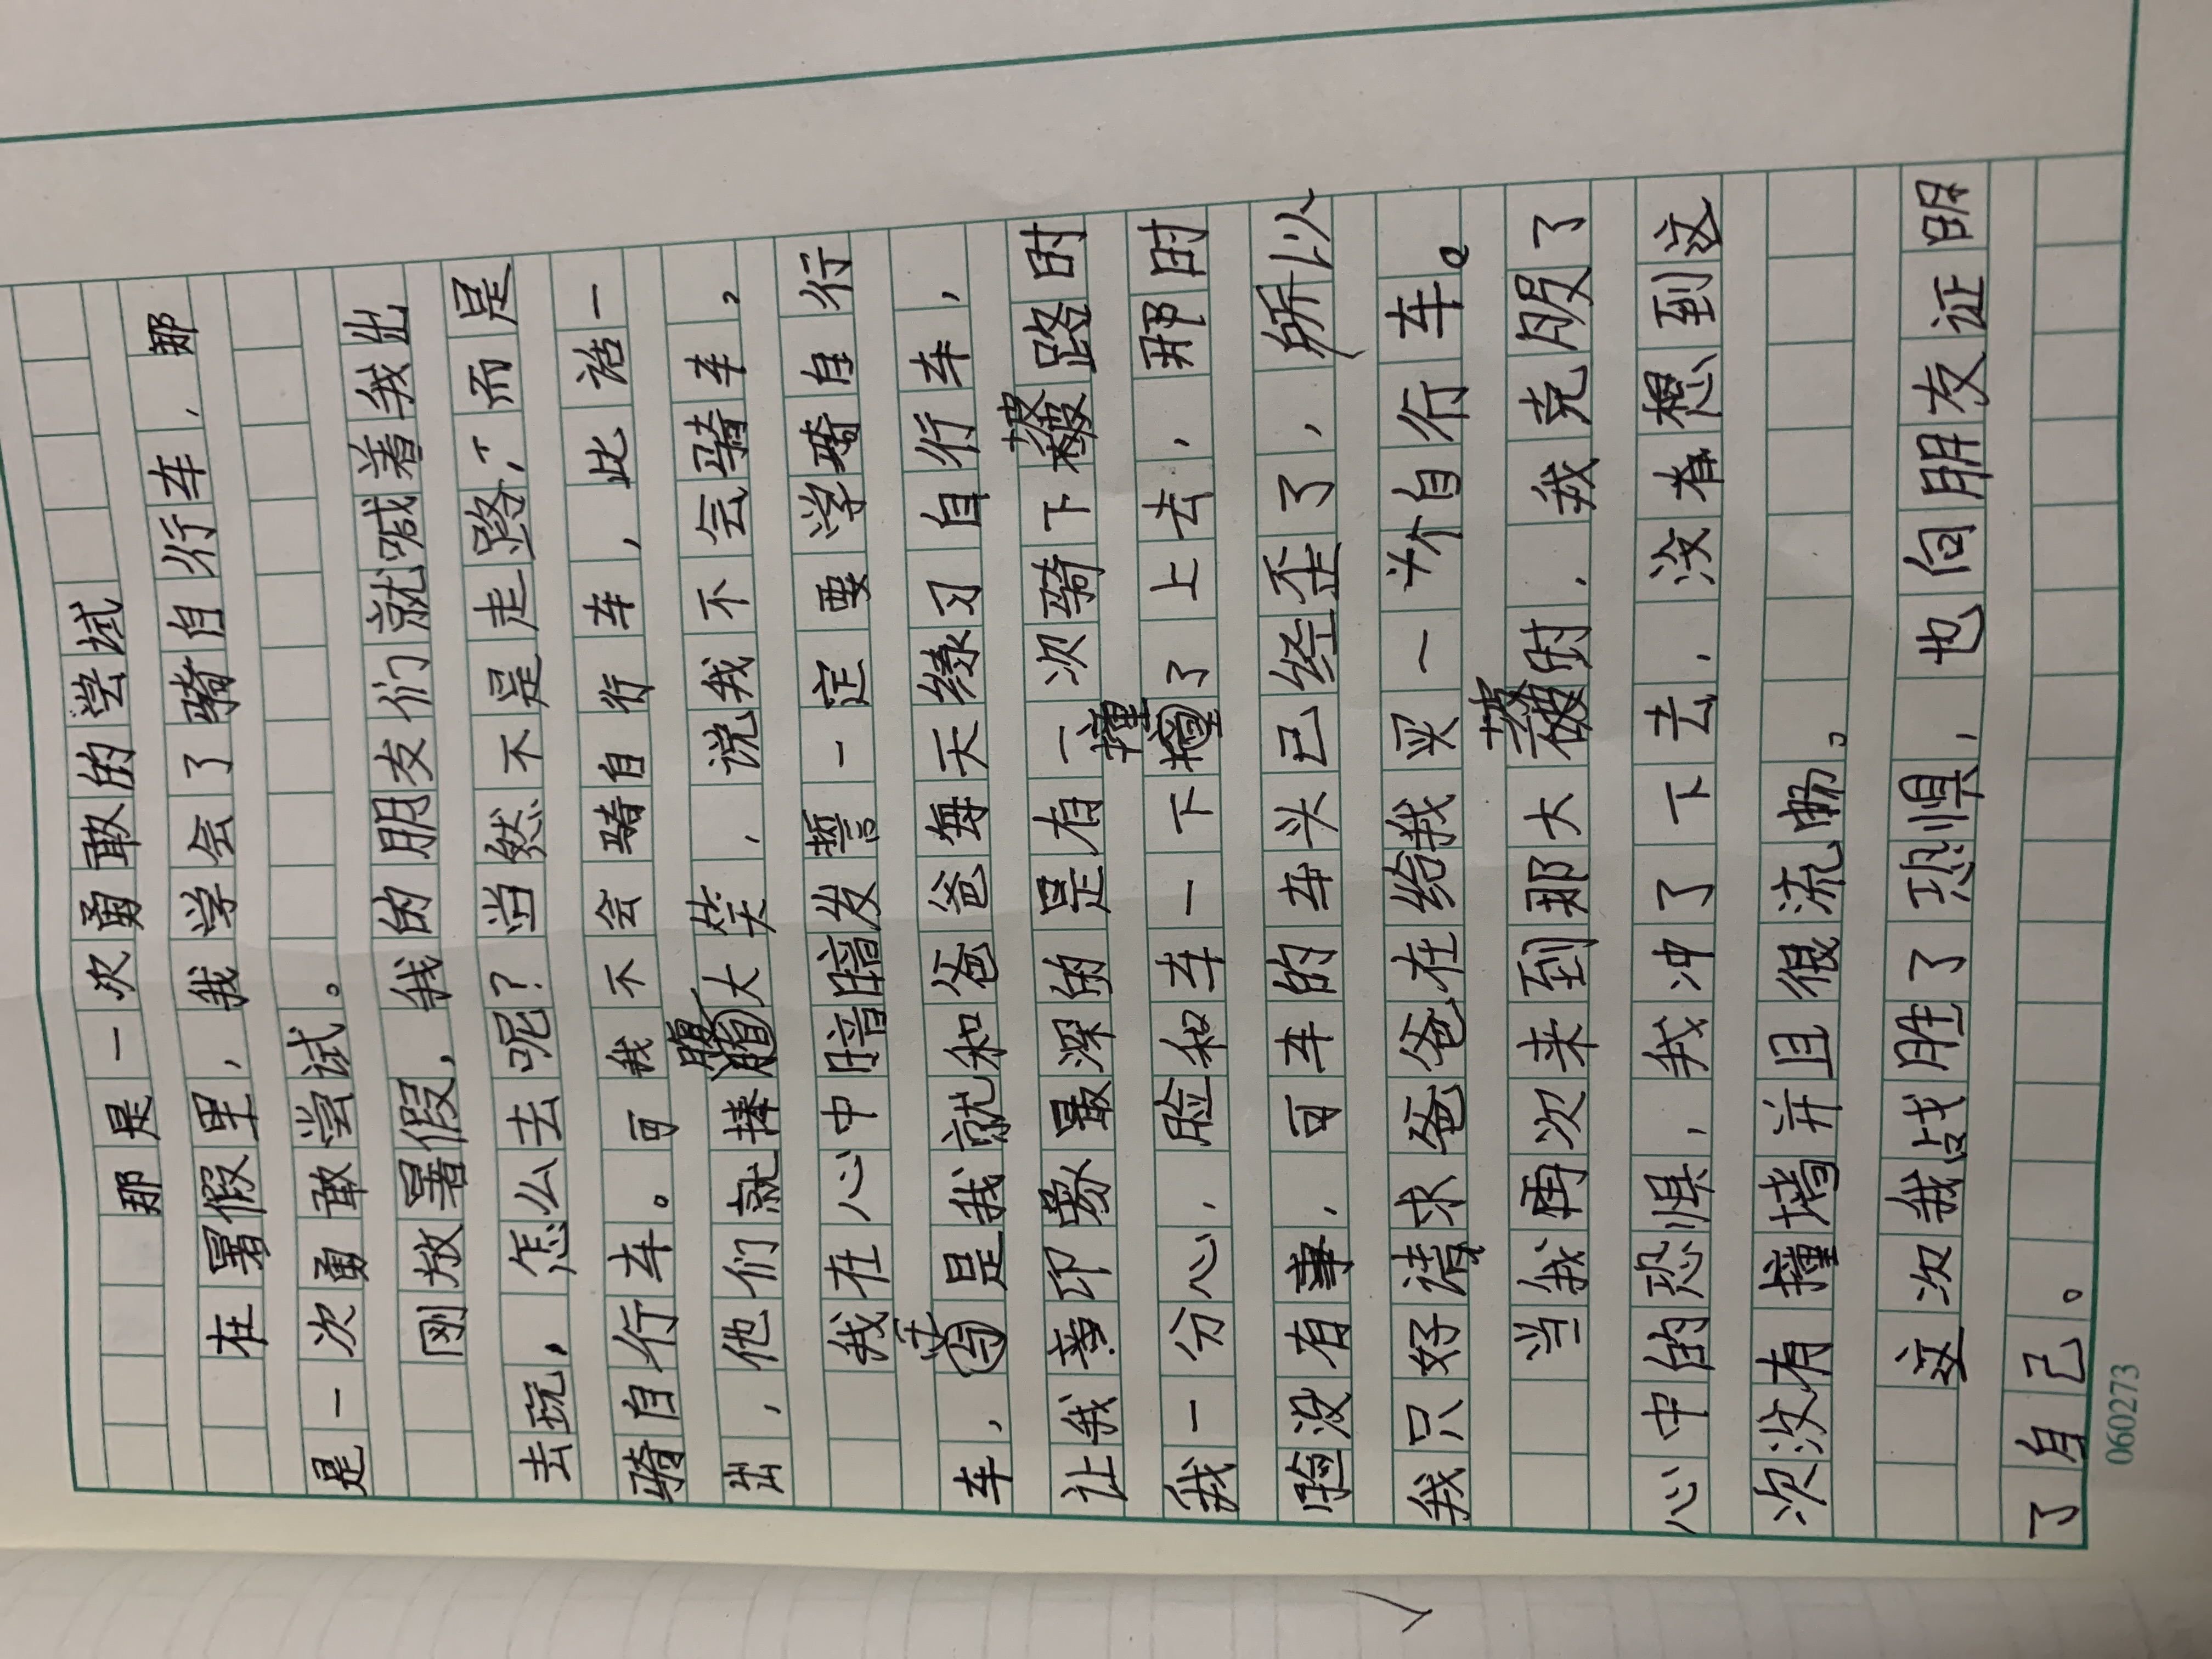 那是一次勇敢的尝试
在暑假里，我学会了骑自行车，那
是一次勇敢尝试。
刚放暑假，我的朋友们就喊着我出
去玩，怎么去呢？当然不是走路，而是
骑自行车。可我不会骑自行车，此话一
出，他们就捧腹大笑，说我不会骑车，
我在心中暗暗发誓一定要学骑自行
车，于是我就和爸爸每天练习自行车，
让我意印象最深的是有一次骑下坡路时
我一分心，脸和车一下撞了上去，那时
脸没有事，可车的车头已经歪了，所以
我只好请求爸爸在给我买一个自行车。
当我再次来到那大坡时，我克服了
心中的恐惧，我冲了下去，没有想到这
次没有撞墙并且很流畅。
这次我战胜了恐惧，也向朋友证明
了自己。
060273